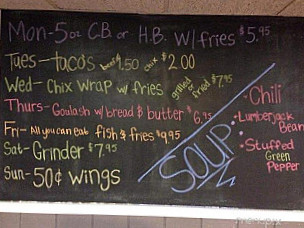 Mon-5oz C.B. or H.B. w/fries $5.95
Tues-tacos beef $1.50 chix $2.00
Wed-Chix Wrap w/fries grilled or fried $7.95
Thurs-Goulash w/bread & butter $6.95
Fri-All you can eat fish & fries $9.95
Sat-Grinder $7.95
Sun-50¢ wings
SOUP:
•Chili
•Lumberjack Bean
•Stuffed
Green
Pepper